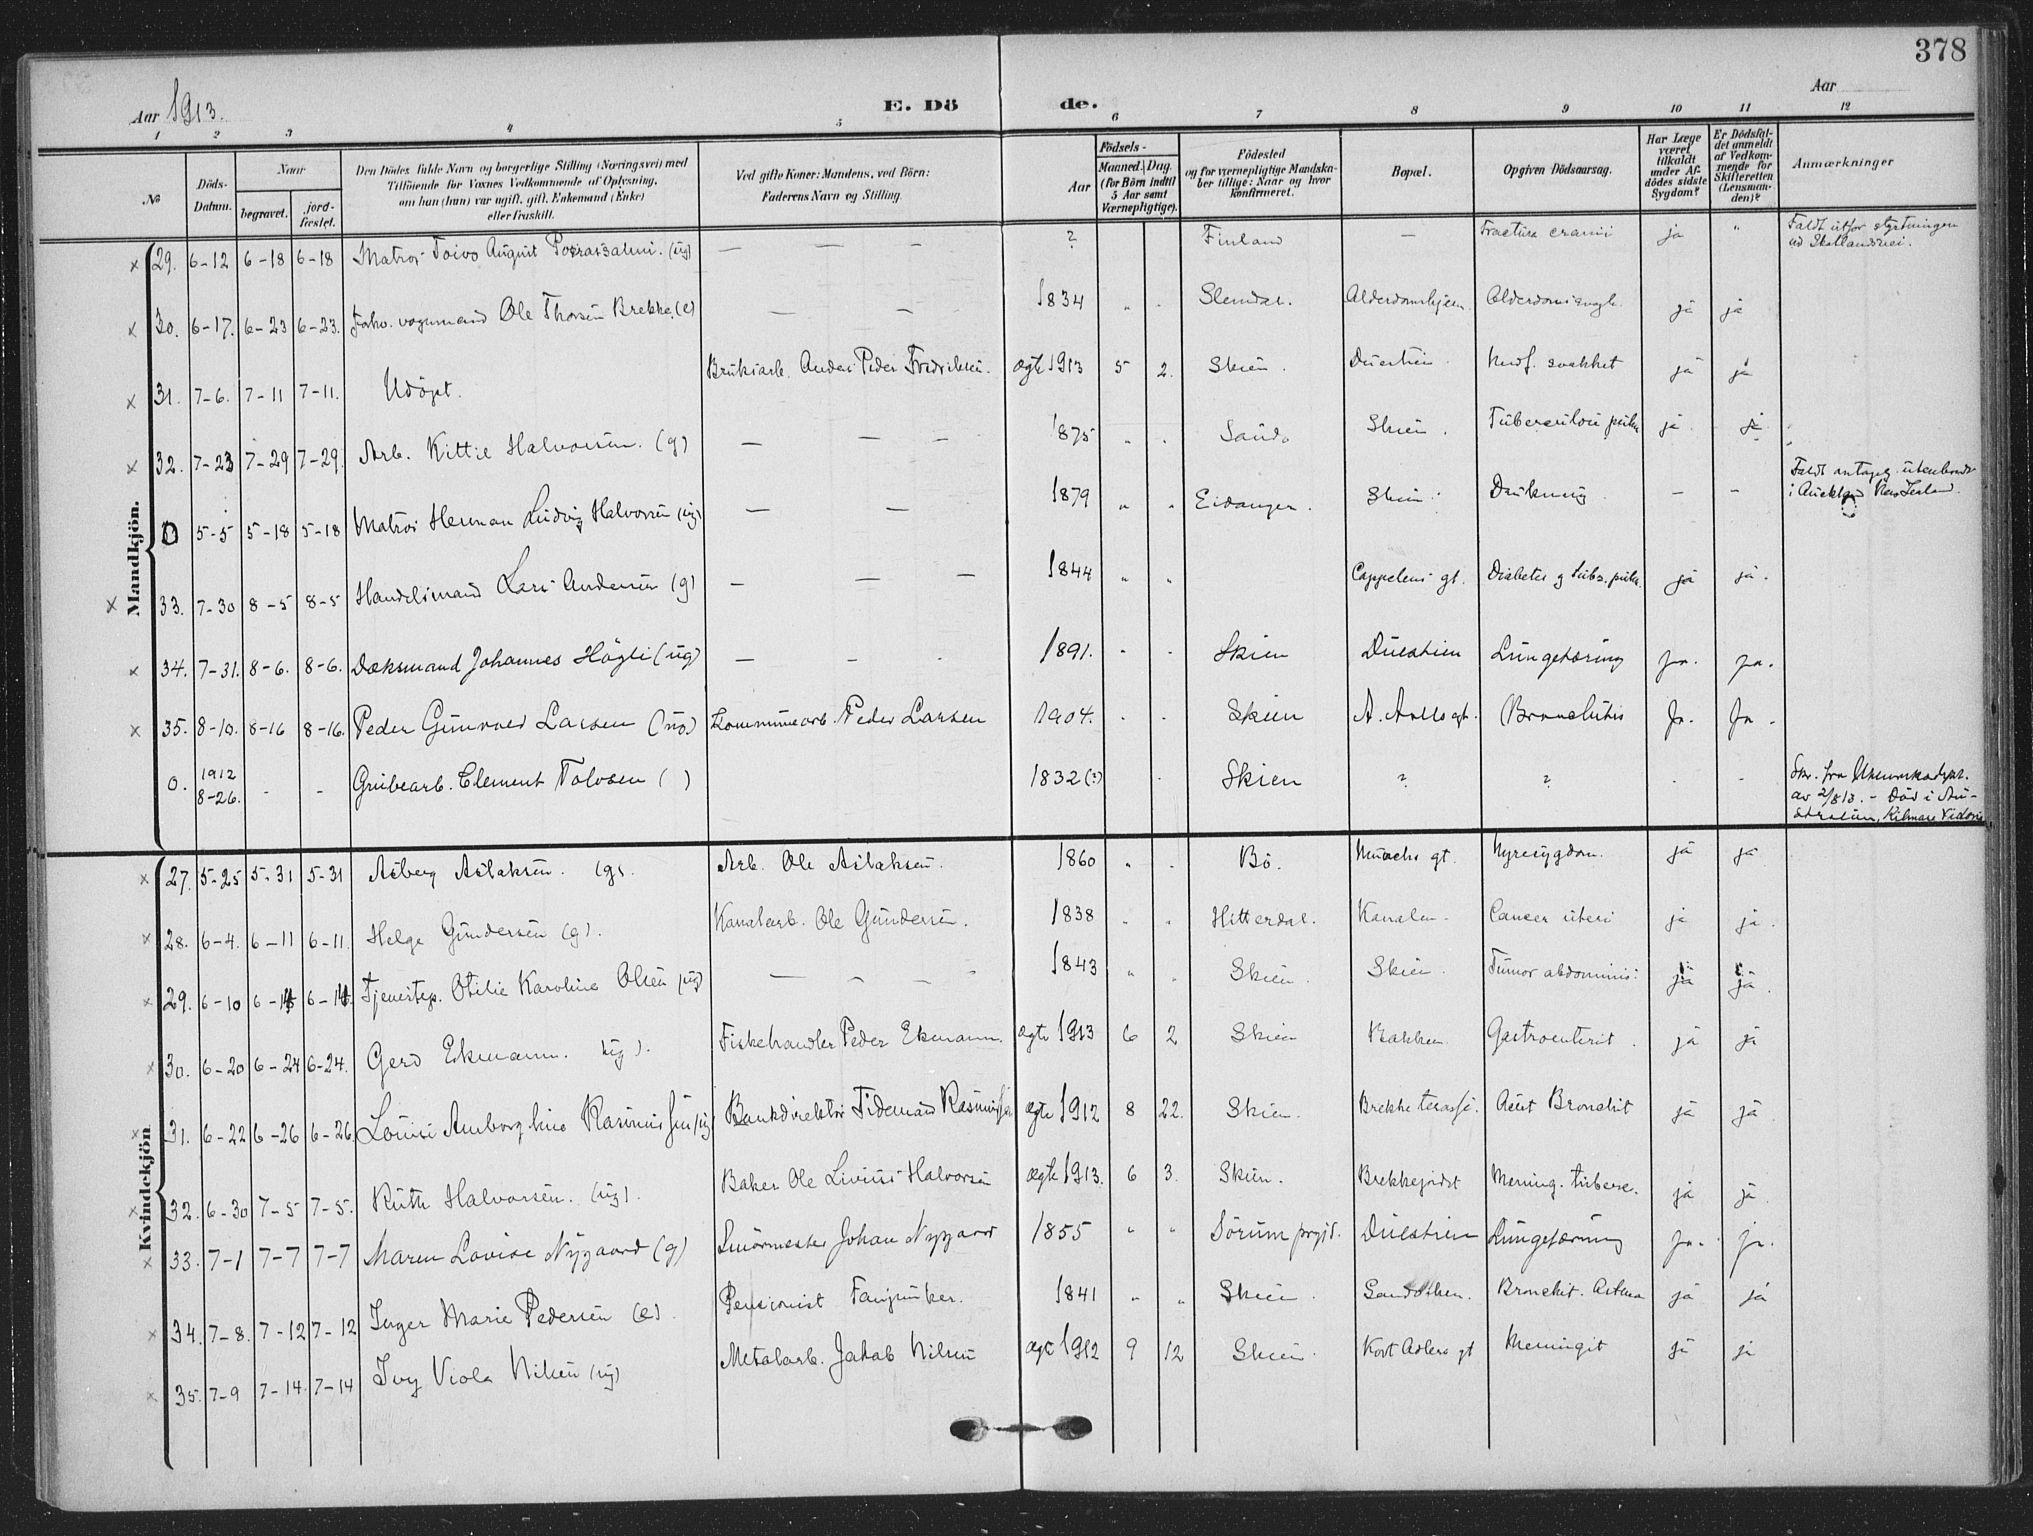 378
Aar 1913.
E. Dö de.
Aar
1 2 3 4 5 6 7 8 9 10 11 12
№
Döds-
Datum.
Naar
begravet.
jord-
fæstet.
Den Dödes fulde Navn og borgerlige Stilling (Næringsvei) med
Tilföiende for Voxnes Vedkommende af Oplysning,
om han (hun) var ugift, gift, Enkemand (Enke)
eller fraskilt.
Ved gifte Koner: Mandens, ved Börn:
Faderens Navn og Stilling.
Födsels-
Aar
Maaned. Dag.
(for Börn indtil
5 Aar samt
Værnepligtige).
Födested
og for værnepligtige Mandska-
ber tillige: Naar og hvor
konfirmeret.
Bopæl.
Opgiven Dödsaarsag.
Har Læge
været
tilkaldt
under Af-
dödes sidste
Sygdom?
Er Dödsfal-
det anmeldt
af Vedkom-
mende for
Skifteretten
(Lensman-
den)?
Anmærkninger
Mandkjön.
29. 6-12 6-18 6-18 Matros Toivo August (ug) — — — ? Finland — Fractura cranii ja " Faldt utfor
30. 6-17. 6-23 6-23. Forhv. vognmand Ole Thorsen Brekke. (e) — — 1834 " . Slemdal. Alderdomshjem. ja ja
31. 7-6. 7-11 7-11. Udöpt. Bruksarb. Anders Peder Fredriksen. ægte 1913 5 2. Skien. Duestien. Medf. svakhet ja ja
32. 7-23 7-29 7-29. Arb. Kittil Halvorsen. (g) — — — 1875 " . Saude Skien. Tuberculose pulm. ja ja
0 5-5 5-18 5-18 Matros Herman Ludvig Halvorsen (ug) — — 1879 " " Eidanger. Skien. Drukning. — — Faldt antagelig utenbords
i Auckland New Zealand.
33. 7-30 8-5 8-5 Handelsmand Lars Andersen (g) — — — 1844 " " Cappelens gt. Diabetes g Tub. pulm. ja ja.
34. 7-31. 8-6. 8-6. Dæksmand Johannes Högli (ug) — — . 1891. " " Skien Duestien Lungetæring ja. ja.
35. 8-10. 8-16 8-16. Peder Gunvald Larsen (ug) Kommunearb. Peder Larsen 1904. . . Skien A. Aalls gt. Bronchitis Ja. Ja.
0. 1912
8-26. - - Grubearb. Clement Tolvsen ( ) 1832(?) . Skien ? ? . . Skr. fra Utenriksdept.
av 2/8 13. - Död i Au-
stralien, Kilmare
Kvindekjön
27. 5-25 5-31 5-31 Asberg Aslaksen. (g). Arb. Ole Aslaksen. 1860 " . Bö. Munchs gt. Nyresygdom. ja ja
28. 6-4. 6-11 6-11. Helge Gundersen (g). Kanalarb. Ole Gundersen. 1838 " " Hitterdal. Kanalen. Cancer uteri ja ja.
29. 6-10 6-14 6-14. Tjenestep. Otilie Karoline Olsen (ug) — — — 1843 " . Skien. Skien. Tumor abdominis. ja ja.
30. 6-20 6-24 6-24. Gerd Ekmann. (ug). Fiskehandler Peder Ekmann. ægte 1913 6 2 Skien Bakken Gastroenterit. ja ja
31. 6-22 6-26 6-26. Louise Rasmussen (ug) Bankdirektör Tidemand Rasmussen ægte 1912 8 22. Skien. Brekke terasse. Acut Bronchit ja ja
32. 6-30 7-5 7-5. Ruth Halvorsen. (ug). Baker Ole Livius Halvorsen ægte 1913. 6 3. Skien. Brekkejordet Mening. tuberc. ja ja
33. 7-1 7-7 7-7 Maren Lovise Nygaard (g) Smörmester Johan Nygaard 1855 " " Sörum prgjd. Duestien Lungetæring ja. ja.
34. 7-8. 7-12 7-12 Inger Marie Pedersen (e). Pensionist Fanjunker. 1841 " " Skien. Bronchit. Astma ja ja
35. 7-9 7-14. 7-14 Ivy Viola Nilsen (ug) Metalarb. Jakob Nilsen ægte 1912 9 12 Skien. Kort Adlers gt Meningit ja ja